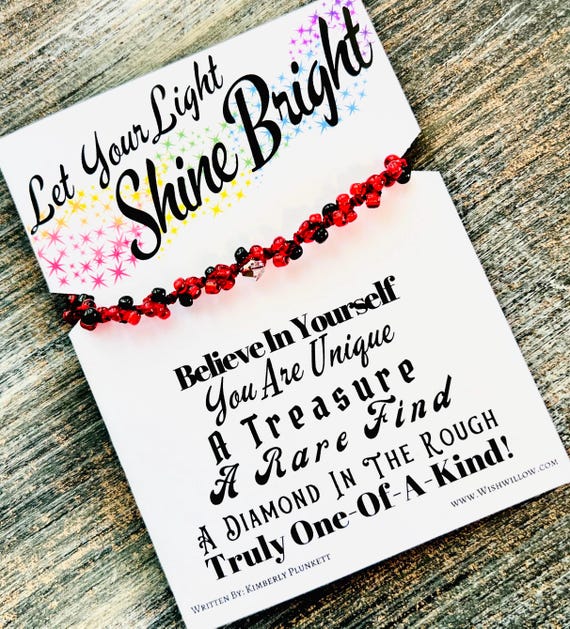 Let Your Light
Shine Bright
Believe In Yourself
You Are Unique
A Treasure
A Rare Find
A Diamond In The Rough
Truly One-Of-A-Kind!
Written By: Kimberly Plunkett
www.Wishwillow.com